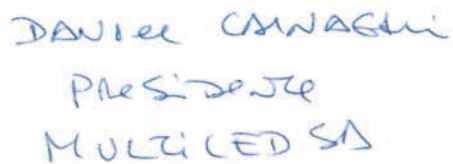 DANIEL CAINAGHI
PRESIDENTE
MULTILED SA